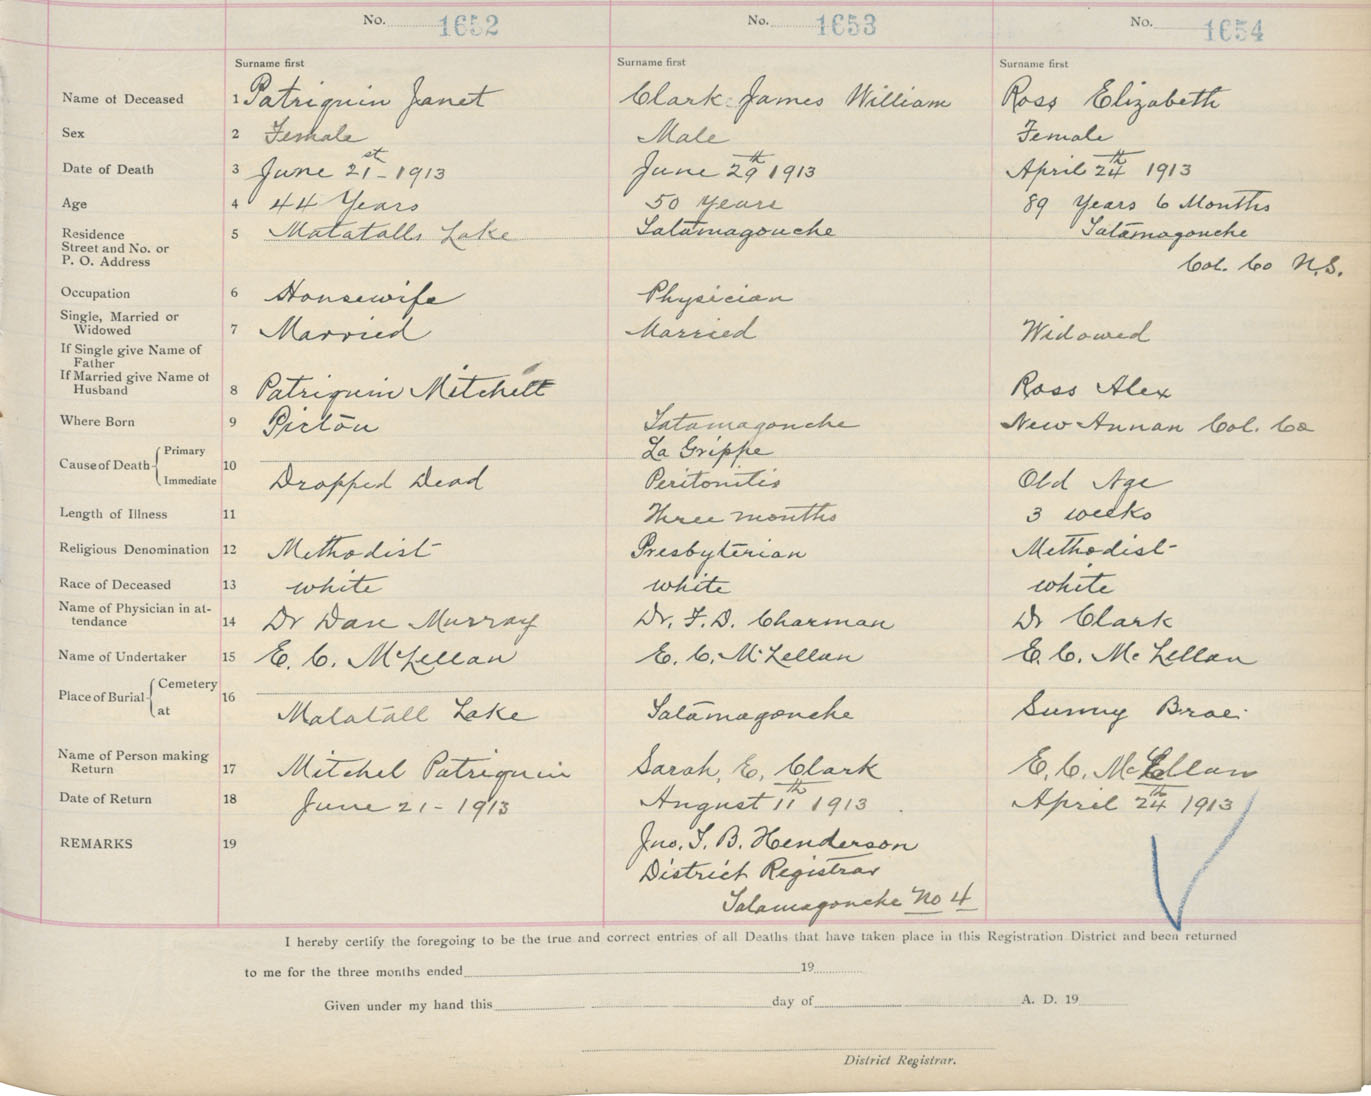 No. 1652 No. 1653 No. 1654
Surname first Surname first Surname first
Name of Deceased 1 Patriquin Janet Clark James William Ross Elizabeth
Sex 2 Female Male Female
Date of Death 3 June 21st - 1913 June 29th 1913 April 24th 1913
Age 4 44 Years 50 years 89 Years 6 Months
Residence
Street and No. or
P. O. Address
5 Matatalls Lake Tatamagouche Tatamagouche
Col. Co N.S.
Occupation 6 Housewife Physician
Single, Married or
Widowed 7 Married Married Widowed
If Single give Name of
Father
If Married give Name of
Husband 8 Patriquin Mitchell Ross Alex
Where Born 9 Pictou Tatamagouche New Annan Col. Co
Cause of Death 10
Primary La Grippe
Immediate Dropped Dead Peritonitis Old Age
Length of Illness 11 Three months 3 weeks
Religious Denomination 12 Methodist Presbyterian Methodist
Race of Deceased 13 white white white
Name of Physician in at-
tendance 14 Dr Dan Murray Dr. F. D. Charman Dr Clark
Name of Undertaker 15 E. C. McLellan E. C. McLellan E. C. McLellan
Place of Burial 16
Cemetery
at Matatall Lake Tatamagouche Sunny Brae
Name of Person making
Return 17 Mitchel Patriquin Sarah, E. Clark E. C. McLellan
Date of Return 18 June 21 - 1913 August 11th 1913 April 24th 1913
REMARKS 19 Jno. T. B. Henderson
District Registrar
Tatamagouche No 4
I hereby certify the foregoing to be the true and correct entries of all Deaths that have taken place in this Registration District and been returned
to me for the three months ended 19
Given under my hand this day of A. D. 19
District Registrar.